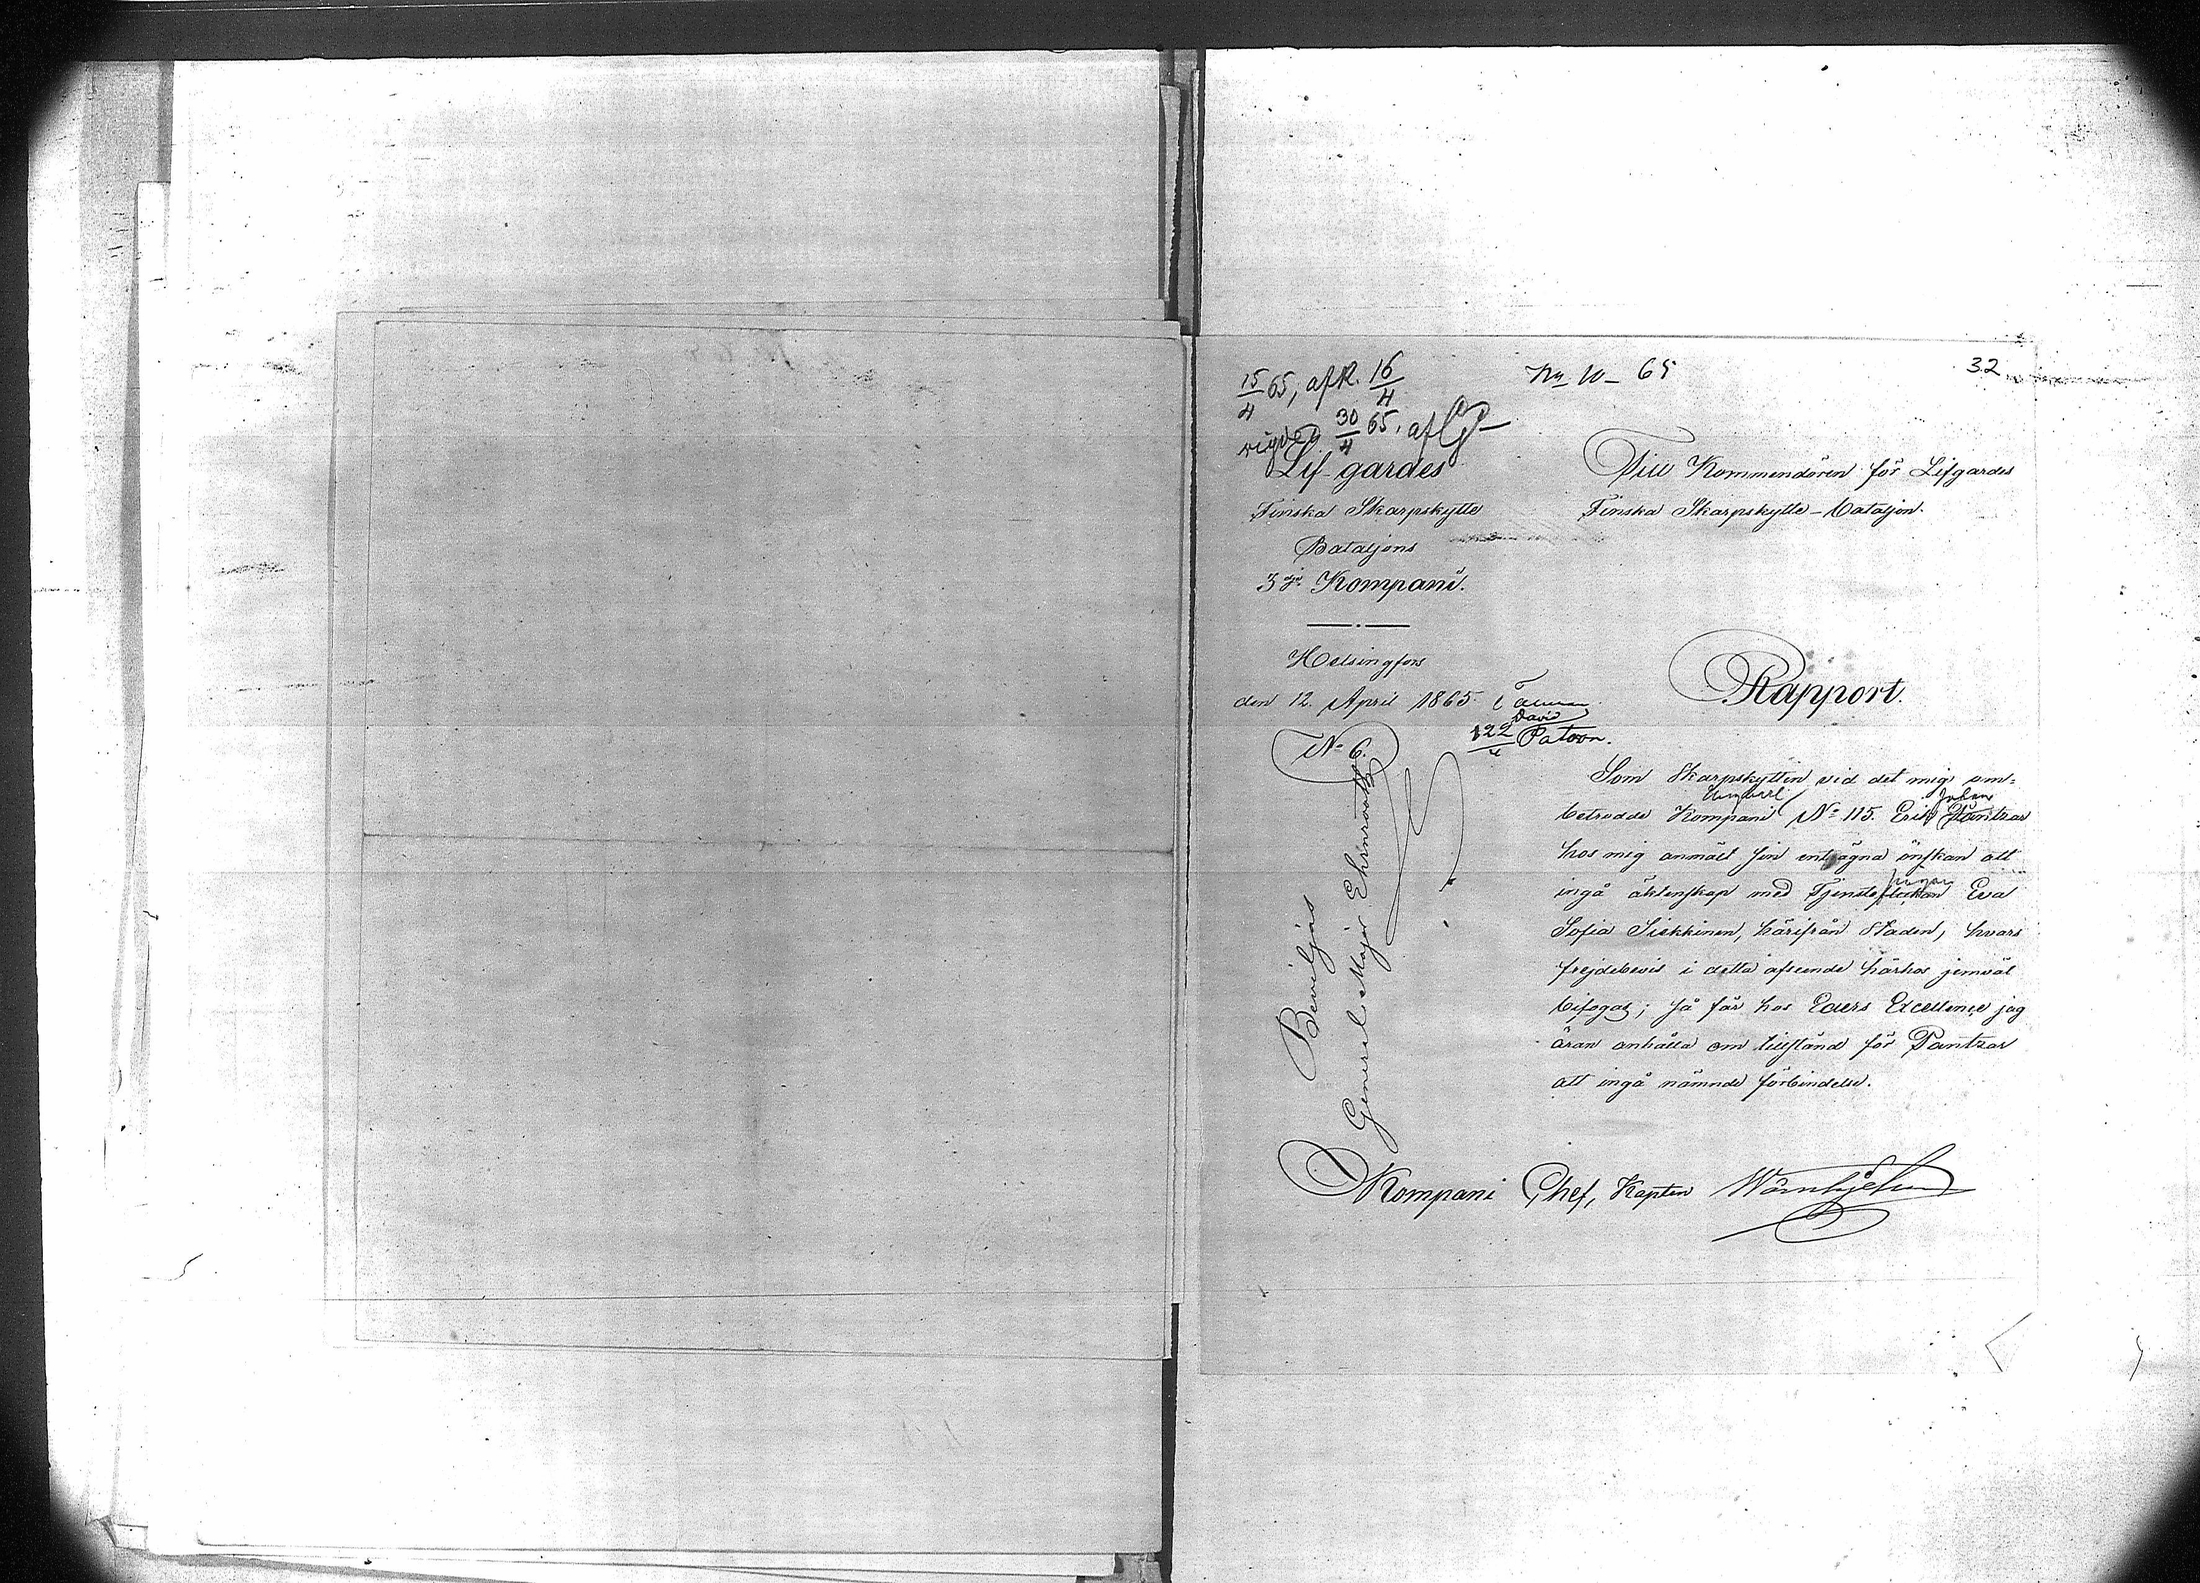 15/4 65, afk. 16/4
No 10 - 65
32
vigde 30/4 65, af
Lif-gardes
Finska Skarpskytte
Bataljons
3dje Kompani.
Helsingfors
den 12. April 1865.
No 6.
David
122/4 Patron.
Till Kommendören för Lifgardes
Finska Skarpskytte-bataljon.
Rapport.
Som Skarpskytten vid det mig an-
Ungkarl
Johan
betrodde Kompani No 115. Erik Pantzar
hos mig anmält sin enträgna önskan att
pigan
ingå äktenskap med Tjensteflickan Eva
Sofia Siekkinen, härifrån Staden, hvars
frejdebevis i detta afseende härhos jemväl
bifogas; så får hos Eders Excellence jag
äran anhålla om tillstånd för Pantzar
att ingå nämnde förbindelse.
Beviljas
General-Major Ehrnrooth
Kompani Chef, Kapten Wärnhjelm